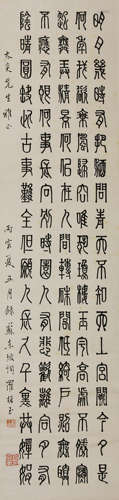 明月幾時有把酒問青天不知天上宮闕今夕是
何年我欲乘風歸去又恐瓊樓玉宇高處不勝寒
起舞弄清影何似在人間轉朱閣低綺戶照無眠
不應有恨何事長向別時圓人有悲歡離合月有
陰晴圓缺此事古難全但願人長久千里共嬋娟
先生雅正 丙寅夏五月錄蘇東坡詞 羅振玉